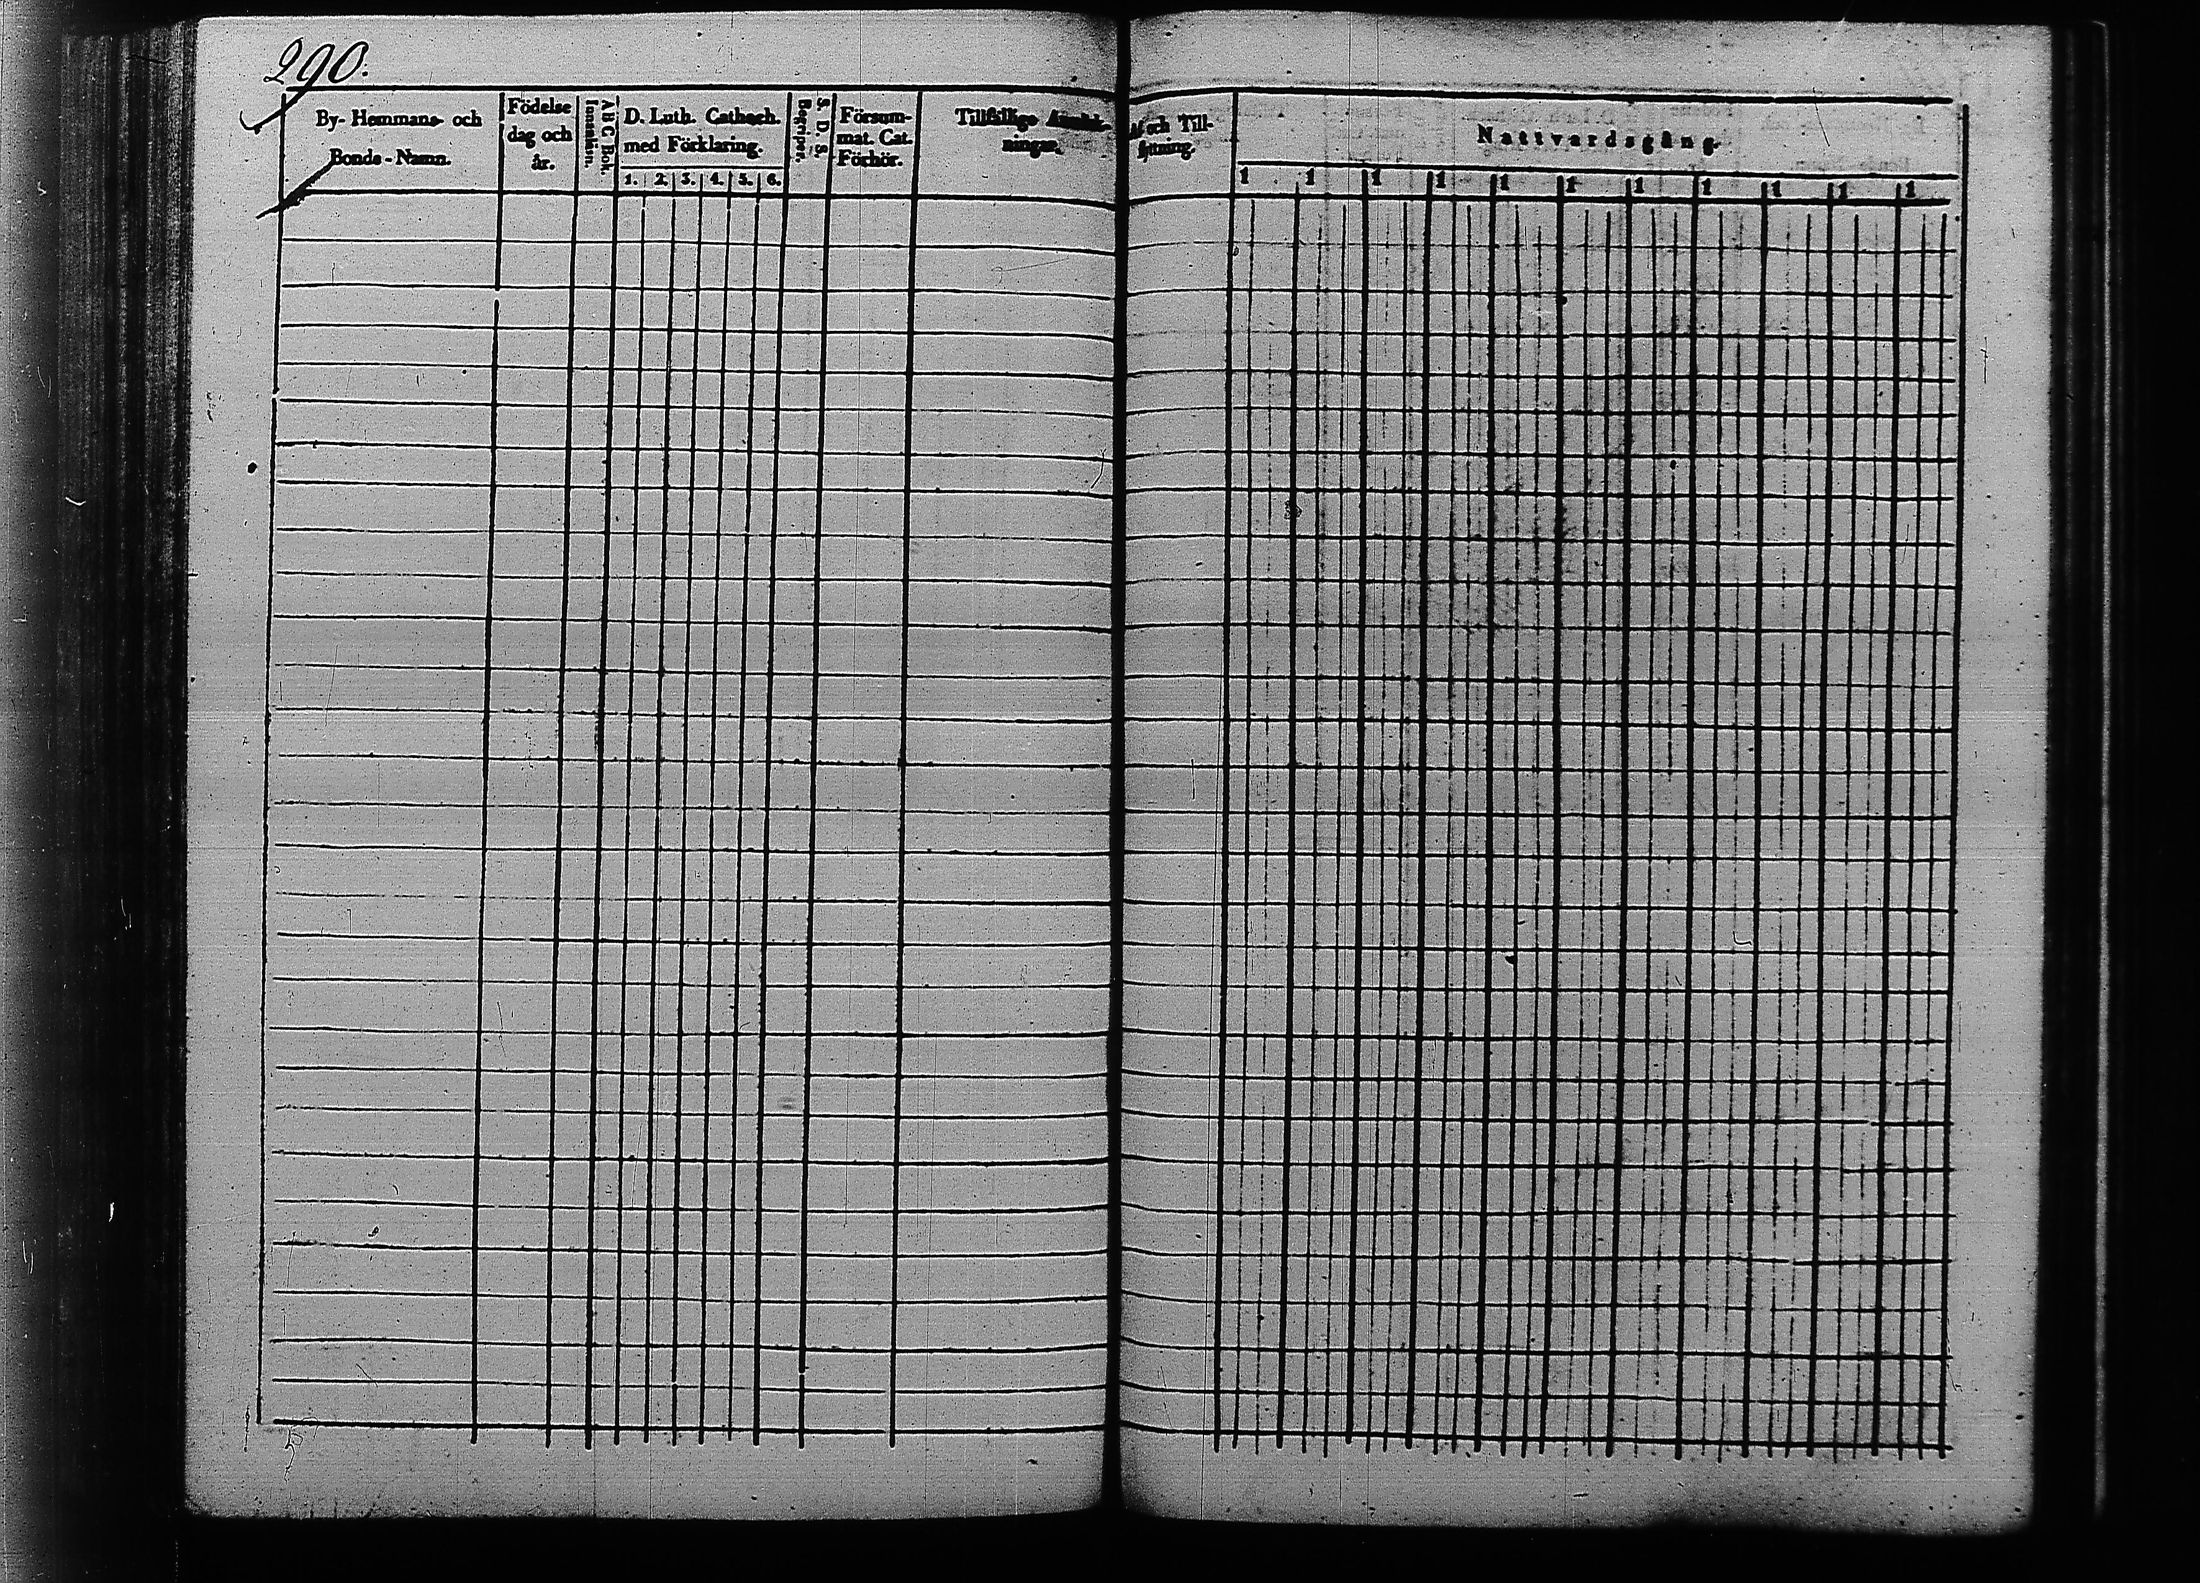 290.
By- Hemmans- och
Bonde - Namn.
Födelse
dag och
år.
A B C Bok.
Innanläsn.
D. Luth. Cathech.
med Förklaring.
1. 2. 3. 4. 5. 6.
S. D. S.
Begriper.
Försum-
mat. Cat.
Förhör.
Tillfällige Anmärk-
ningar.
Af och Till-
flyttning.
Nattvardsgång.
1 1 1 1 1 1 1 1 1 1 1